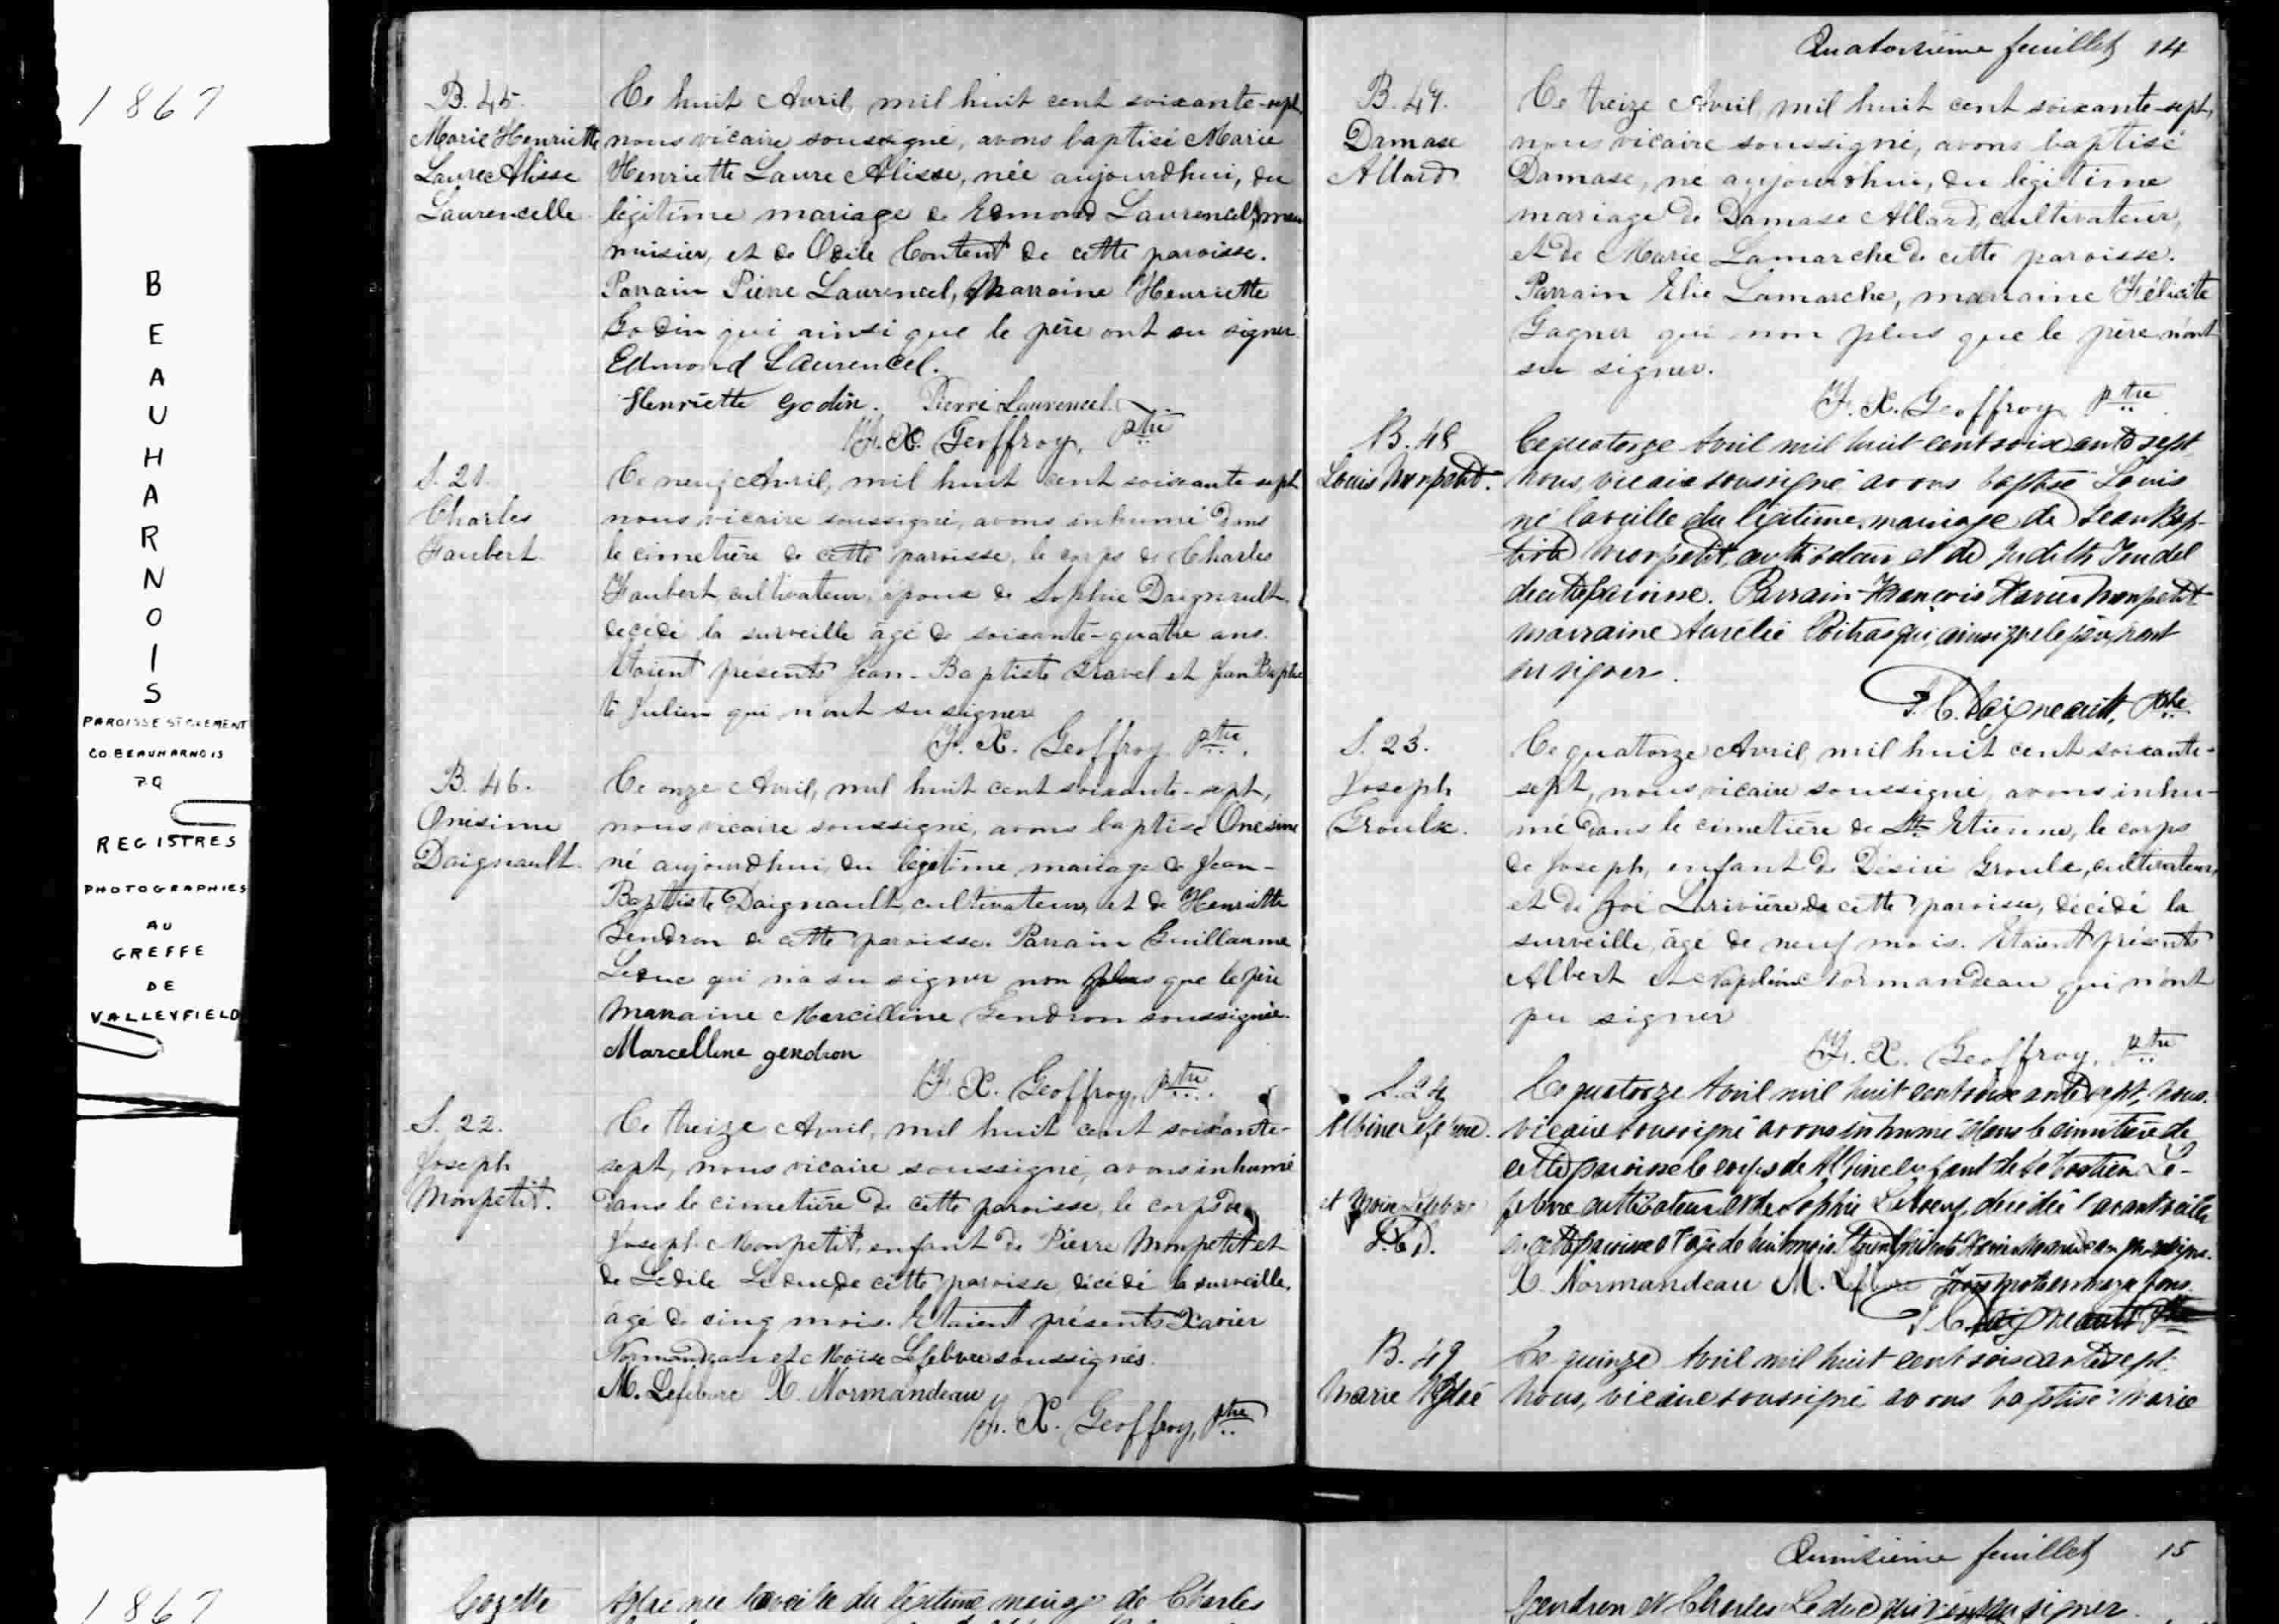 1867
BEAUHARNOIS
PAROISSE ST CLEMENT
CO. BEAUHARNOIS
P.Q
REGISTRES
PHOTOGRAPHIES
AU
GREFFE
DE
VALLEYFIELD
1867
B. 45.
Marie Henriette
Laure Alisse
Laurencelle
Ce huit Avril, mil huit cent soixante-sept,
nous vicaire soussigné, avons baptisé Marie
Henriette Laure Alisse, née aujourdhui, du
légitime mariage de Edmond Laurencel, me
nuisier, et de Odile Content de cette paroisse.
Parrain Pierre Laurencel, Marraine Henriette
Godin qui ainsi que le père ont su signer.
Edmond Laurencel.
Henriette Godin. Pierre Laurencel
F. X. Geoffroy, ptre
S. 21.
Charles
Faubert
Ce neuf Avril, mil huit cent soixante-sept
nous vicaire soussigné, avons inhumé dans
le cimetière de cette paroisse, le corps de Charles
Faubert, cultivateur, époux de Sophie Daignault,
décédé la surveille âgé de soixante-quatre ans.
Etaient présents Jean-Baptiste Gravel et Jean Baptis
te Julien qui n'ont su signer
F. X. Geoffroy ptre.
B. 46.
Onésime
Daignault.
Ce onze Avril, mil huit cent soixante-sept,
nous vicaire soussigné, avons baptisé Onésime
né aujourdhui, du légitime mariage de Jean-
Baptiste Daignault, cultivateur, et de Henriette
Gendron de cette paroisse. Parrain Guillaume
Leduc qui n'a su signer non plus que le père
Marraine Marcilline Gendron soussignée.
Marcelline gendron
F. X. Geoffroy, ptre
S. 22.
Joseph
Monpetit.
Ce treize Avril, mil huit cent soixante-
sept, nous vicaire soussigné, avons inhumé
dans le cimetière de cette paroisse, le corps de
Joseph Monpetit, enfant de Pierre Monpetit et
de Leduc de cette paroisse décédé la surveille,
âgé de cinq mois. Etaient présents Xavier
Normandeau et Moïse Lefebvre soussignés.
M. Lefebvre X. Normandeau
F. X. Geoffroy, ptre
Quatorsième feuillet 14
B. 47.
Damase
Allard
Ce treize Avril, mil huit cent soixante-sept,
nous vicaire soussigné, avons baptisé
Damase, né aujourdhui, du légitime
mariage de Damase Allard, cultivateur,
et de Marie Lamarche de cette paroisse.
Parrain Elie Lamarche, marraine Félicité
Gagner qui non plus que le père n'ont
su signer.
F. X. Geoffroy ptre
B. 48
Louis Monpetit.
Ce quatorze Avril mil huit cent soixante sept
nous, vicaire soussigné avons baptisé Louis
né la veille du légitime mariage de Jean Bap-
tiste Monpetit, cultivateur et de Judith
de cette paroisse. Parrain François Xavier Monpetit
marraine Aurelie Poitras qui, ainsi que le père, n'ont
su signer.
Daigneault, ptre
S. 23.
Joseph
Groulx.
Ce quatorze Avril, mil huit cent soixante-
sept, nous vicaire soussigné, avons inhu-
mé dans le cimetière de St. Etienne, le corps
de Joseph, enfant de Désiré Groulx, cultivateur,
et de Zoé Larivière de cette paroisse, décédé la
surveille, âgé de neuf mois. Etaient présents
Albert et Napoléon Normandeau qui n'ont
pu signer
F. X. Geoffroy, ptre
S. 24
Albine Lefebvre.
Ce quatorze Avril mil huit cent soixante sept, nous
vicaire soussigné avons inhumé dans le cimetière de
cette paroisse le corps de Albine enfant de Sebastien Le-
et Moïse Lefebvre
febvre cultivateur et de Sophie Leboeuf, décédée l'avant veille
de cette paroisse à l'âge de huit mois. Etaient présents Xavier Normandeau
X. Normandeau M. Lefebvre
Daigneault Ptre
B. 49
Marie Aglaé
Ce quinze Avril mil huit cent soixante sept.
Nous, vicaire soussigné avons baptisé Marie
Cozette
Aglaé née la veille du légitime mariage de Charles
Quinsième feuillet 15
Gendron et Charles Leduc signer